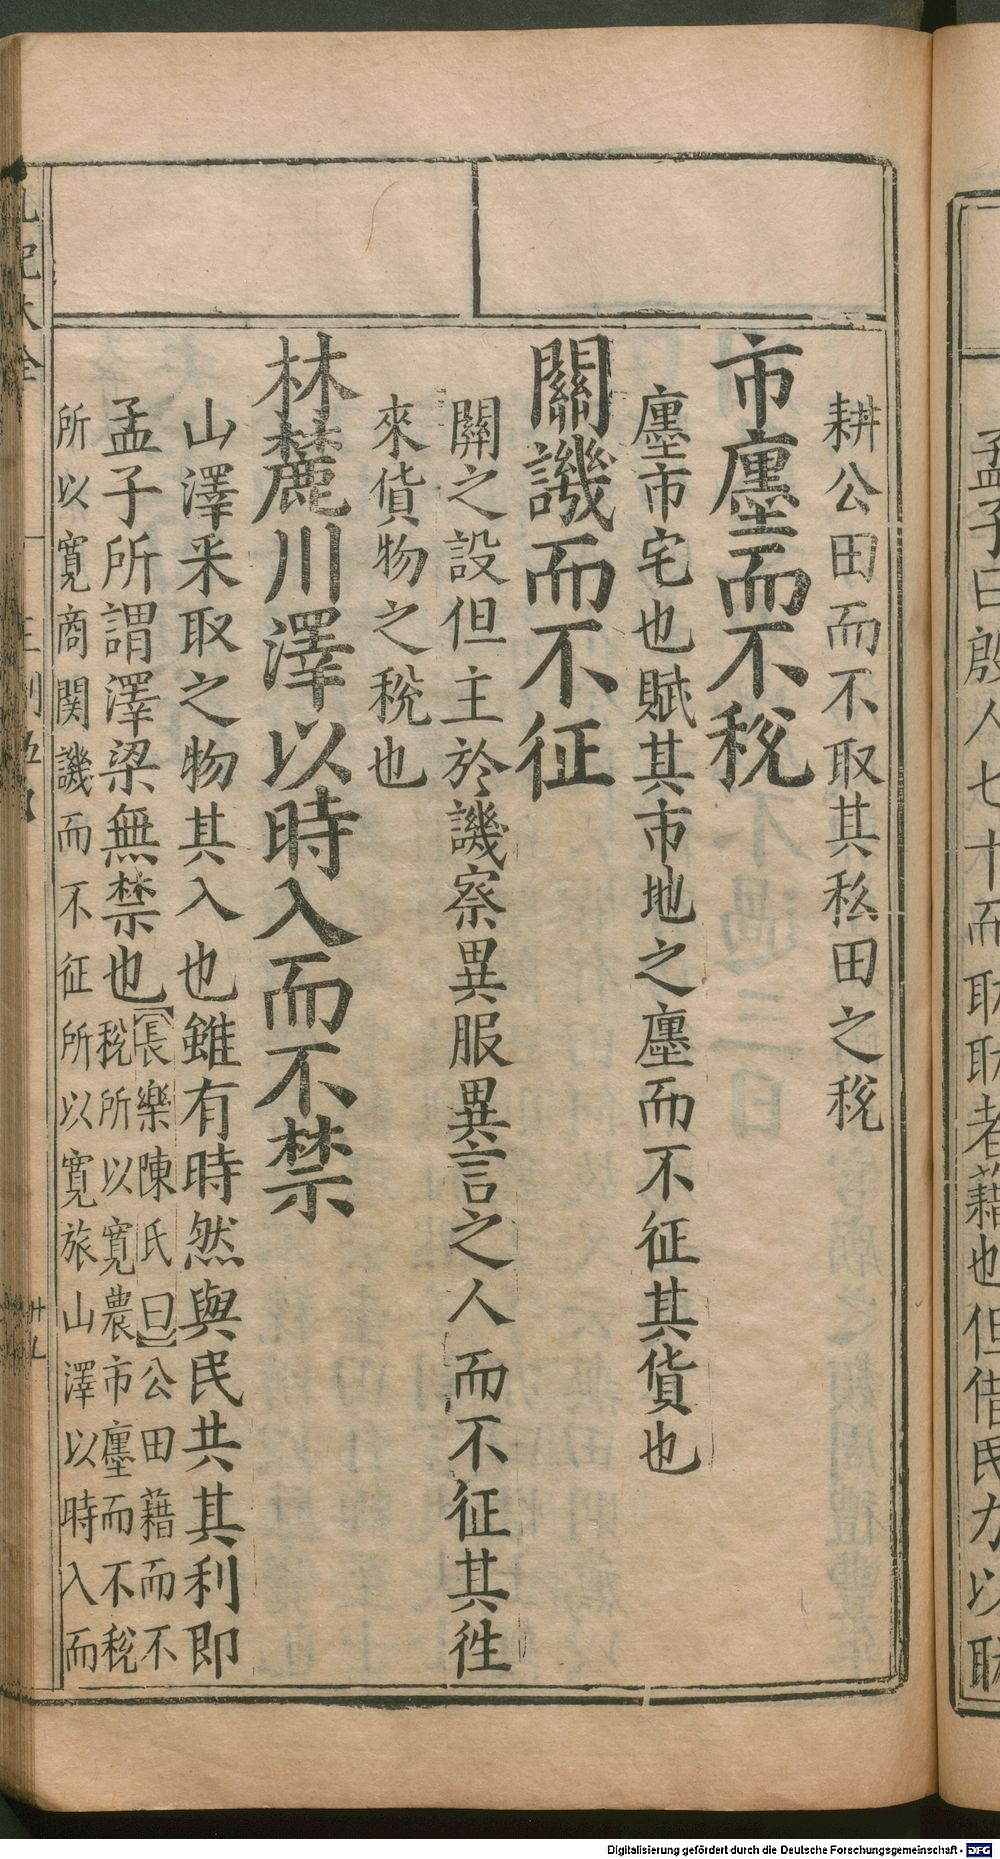 孟子曰殷人七十而耡耡者藉也但借民力以耡
耕公田而不取其私田之稅
市廛而不稅
廛市宅也賦其市地之廛而不征其貨也
關譏而不征
關之設但主於譏察異服異言之人而不征其徃
來貨物之稅也
林麓川澤以時入而不禁
山澤采取之物其入也雖有時然與民共其利即
孟子所謂澤梁無禁也【長樂陳氏曰】公田藉而不
稅所以寛農市廛而不稅
所以寛商関譏而不征所以寛旅山澤以時入而
記大全
王制
Digitalisierung gefördert durch die Deutsche Forschungsgemeinschaft - DFG